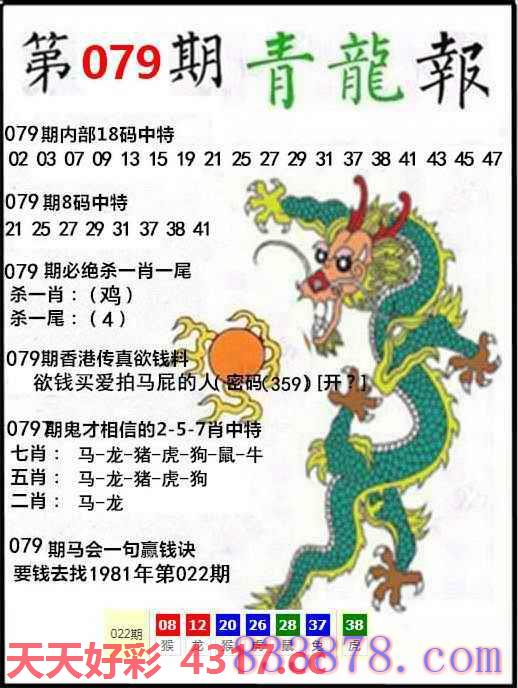 第079期 青龍報
079期内部18码中特
02 03 07 09 13 15 19 21 25 27 29 31 37 38 41 43 45 47
079期8码中特
21 25 27 29 31 37 38 41
079 期必绝杀一肖一尾
杀一肖：（鸡）
杀一尾：（4）
079期香港传真欲钱料
欲钱买爱拍马屁的人(密码(359) [开？]
079期鬼才相信的2-5-7肖中特
七肖： 马-龙-猪-虎-狗-鼠-牛
五肖： 马-龙-猪-虎-狗
二肖： 马-龙
079 期马会一句赢钱诀
要钱去找1981年第022期
022期 08 12 20 26 28 37 38
猴 龙 猴 虎 鼠 兔 虎
天天好彩 4317.cc
838878.com